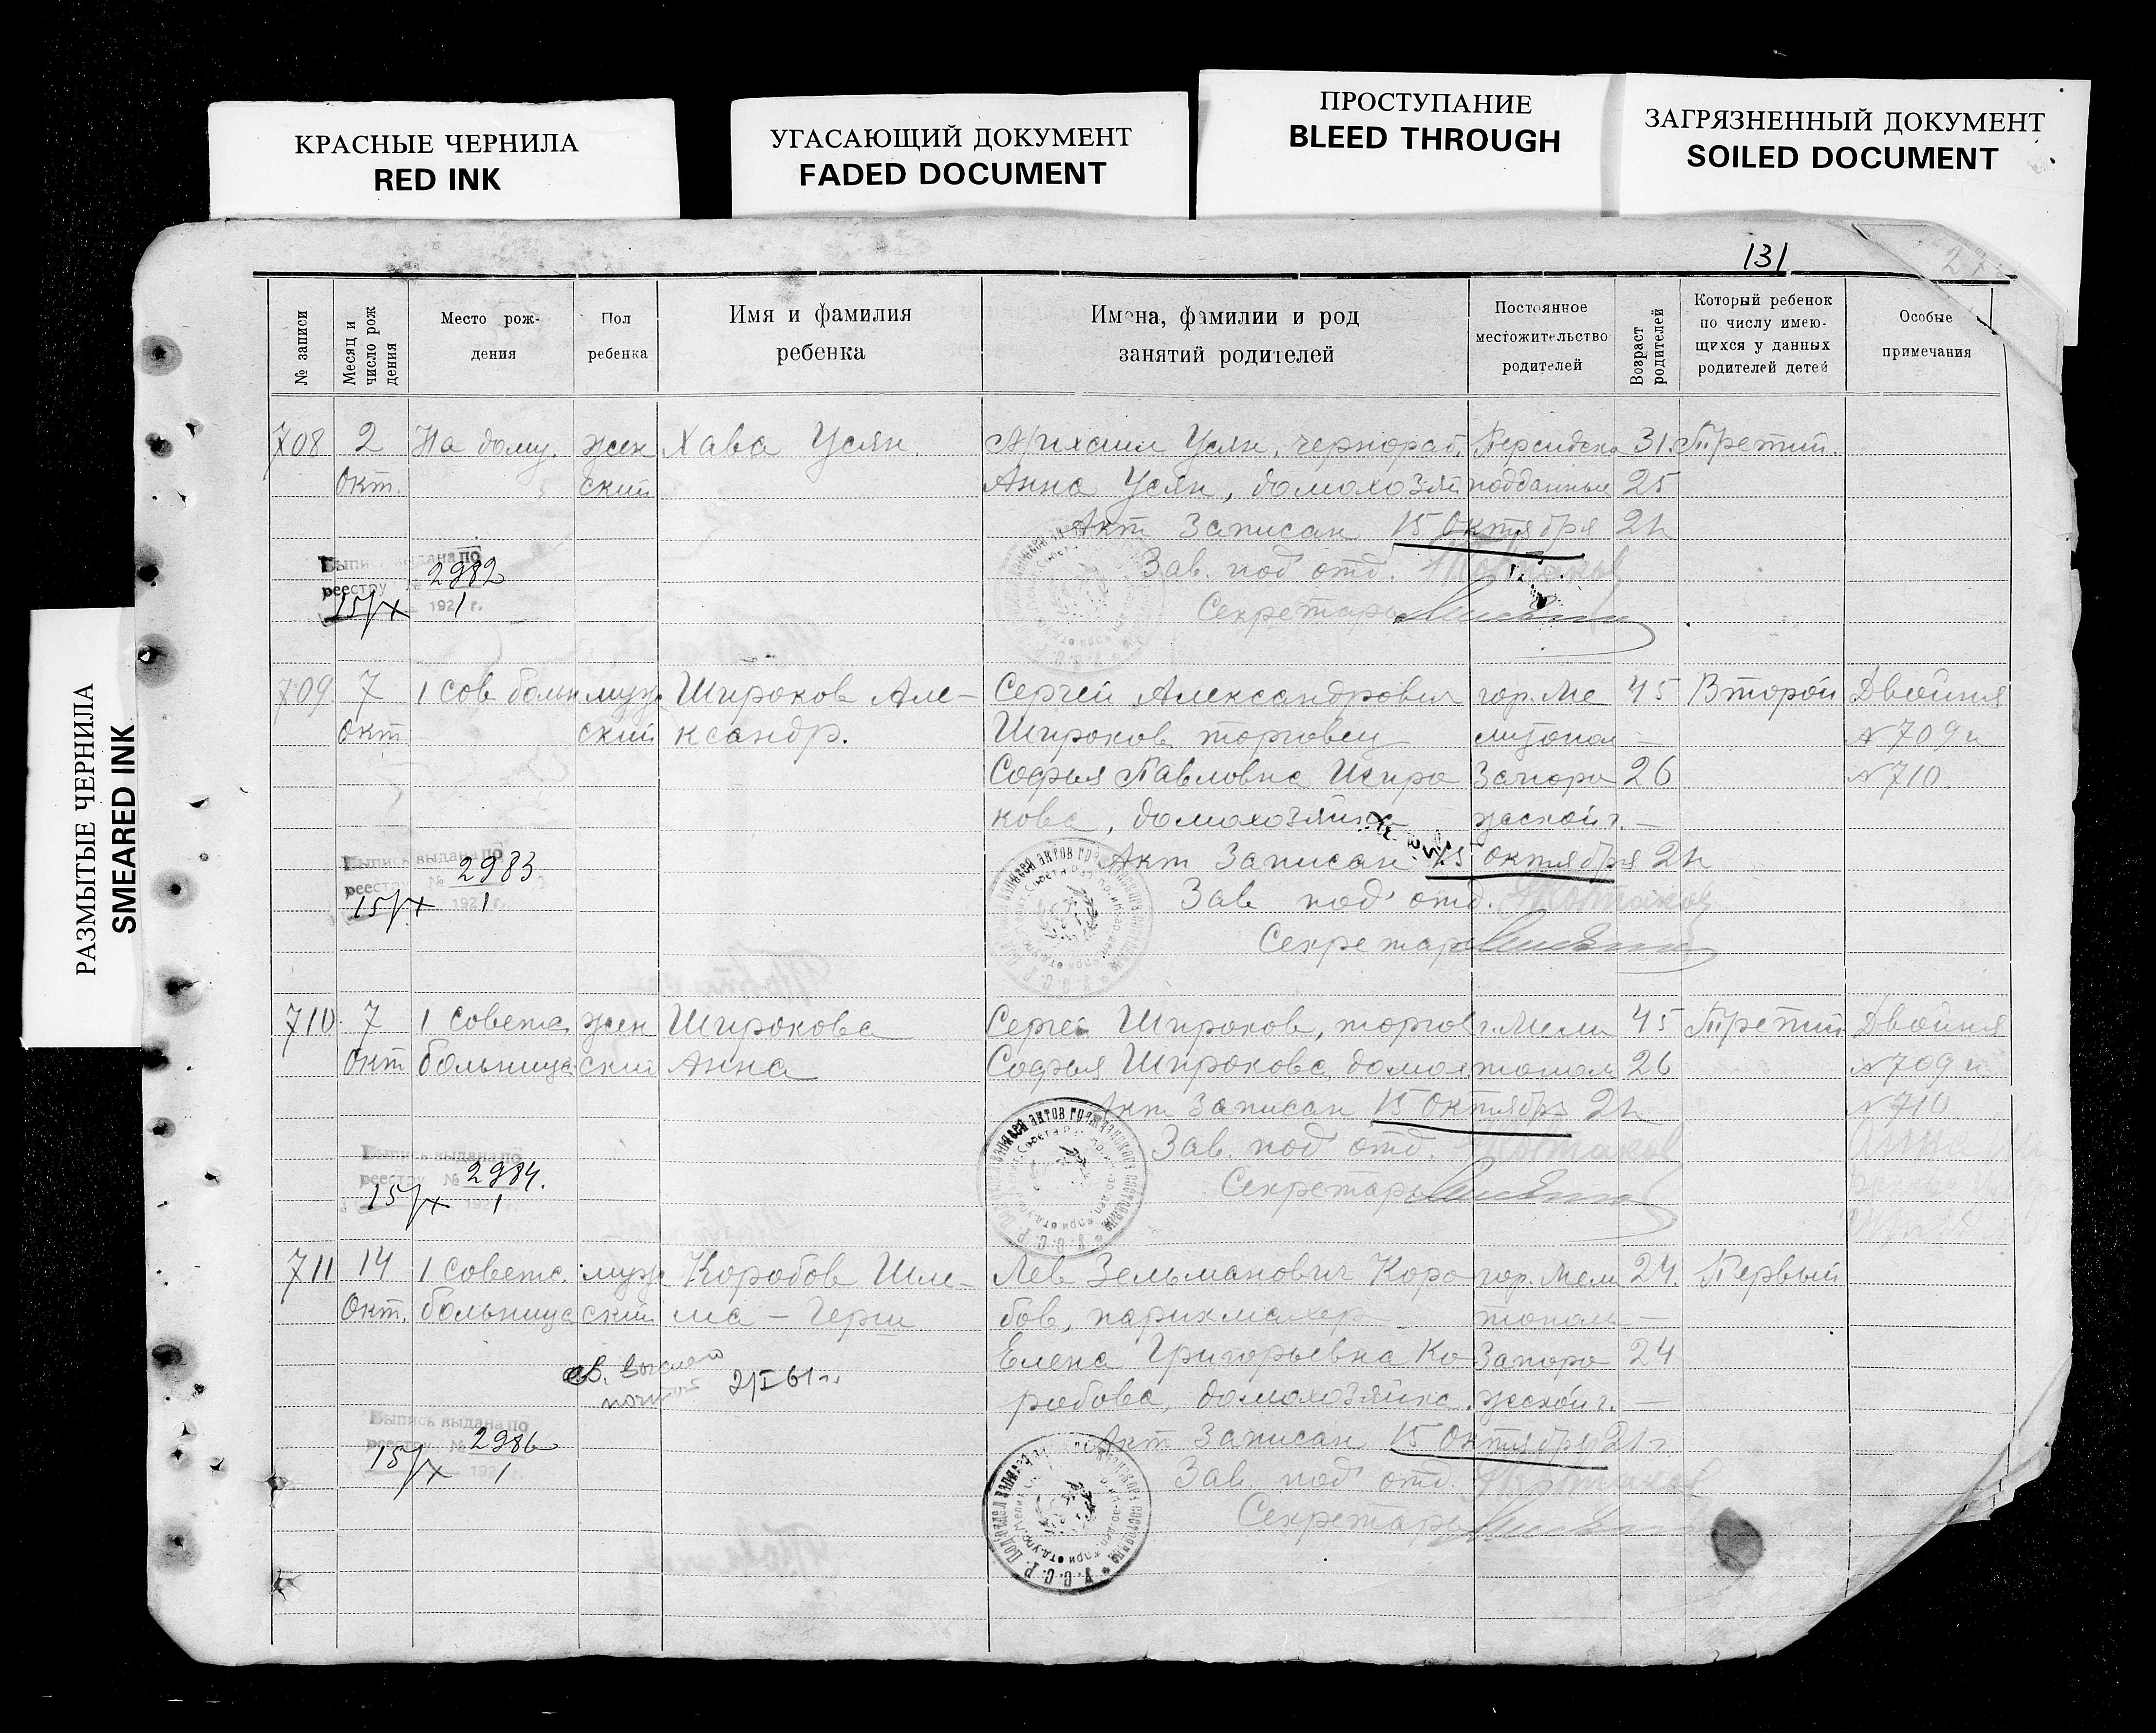 КРАСНЫЕ ЧЕРНИЛА
RED INK
УГАСАЮЩИЙ ДОКУМЕНТ
FADED DOCUMENT
ПРОСТУПАНИЕ
BLEED THROUGH
ЗАГРЯЗНЕННЫЙ ДОКУМЕНТ
SOILED DOCUMENT
РАЗМЫТЫЕ ЧЕРНИЛА
SMEARED INK
131
№ записи
Месяц и число рождения
Место рож-
дения
Пол
ребенка
Имя и фамилия
ребенка
Имена, фамилии и род
занятий родителей
Постоянное
местожительство
родителей
Возраст
родителей
Который ребенок
по числу имею-
щихся у данных
родителей детей
Особые
примечания
708 2 На дому. жен Хава Усян. Михаил Усян, чернораб. Персидск 31. Третий.
Окт. ский Анна Усян, домохозяй подданные 25
Акт записан 15 Октября 21г
Выпись выдана по
реестру № 2982
15/X 1921 г.
Зав. под'отд.
Секретарь
709 7 1 сов больн муж Широков Але- Сергей Александрович гор. Ме 45 Второй Двойня
Окт. ский ксандр. Широков торговец литопол — №709 и
Софья Павловна Широ Запоро 26 №710.
кова, домохозяйка жской г. —
Акт записан 15 октября 21г
Выпись выдана по
реестру № 2983
15/X 1921 г.
Зав под'отд.
Секретарь
710 7 1 советс. жен Широкова Сергей Широков, торгов г. Мели 45 Третий Двойня
Окт больница ский Анна Софья Широкова, домох тополь 26 №709 и
Акт записан 15 Октября 21г №710
Выпись выдана по
реестру № 2984.
15/X 1921 г.
Зав. под'отд.
Секретарь
711 14 1 советс. муж Коробов Шле- Лев Зельманович Коро гор. Мели 24. Первый
Окт. больница ский ма - Герш бов, парикмахер тополь —
Елена Григорьевна Ко Запоро 24
св. выслано
почтой 2/I 61 г.
робова, домохозяйка. жской г. —
Акт записан 15 Октября 21г
Выпись выдана по
реестру № 2986
15/X 1921 г.
Зав под'отд.
Секретарь